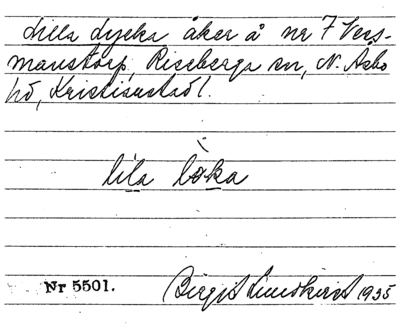 Lilla Lycka åker å nr 7 Vers-
manstorp, Riseberga sn, N. Åsbo
hd, Kristianstad l.
lila lɔka
Nr 5501.
Birgit Lindkvist 1935